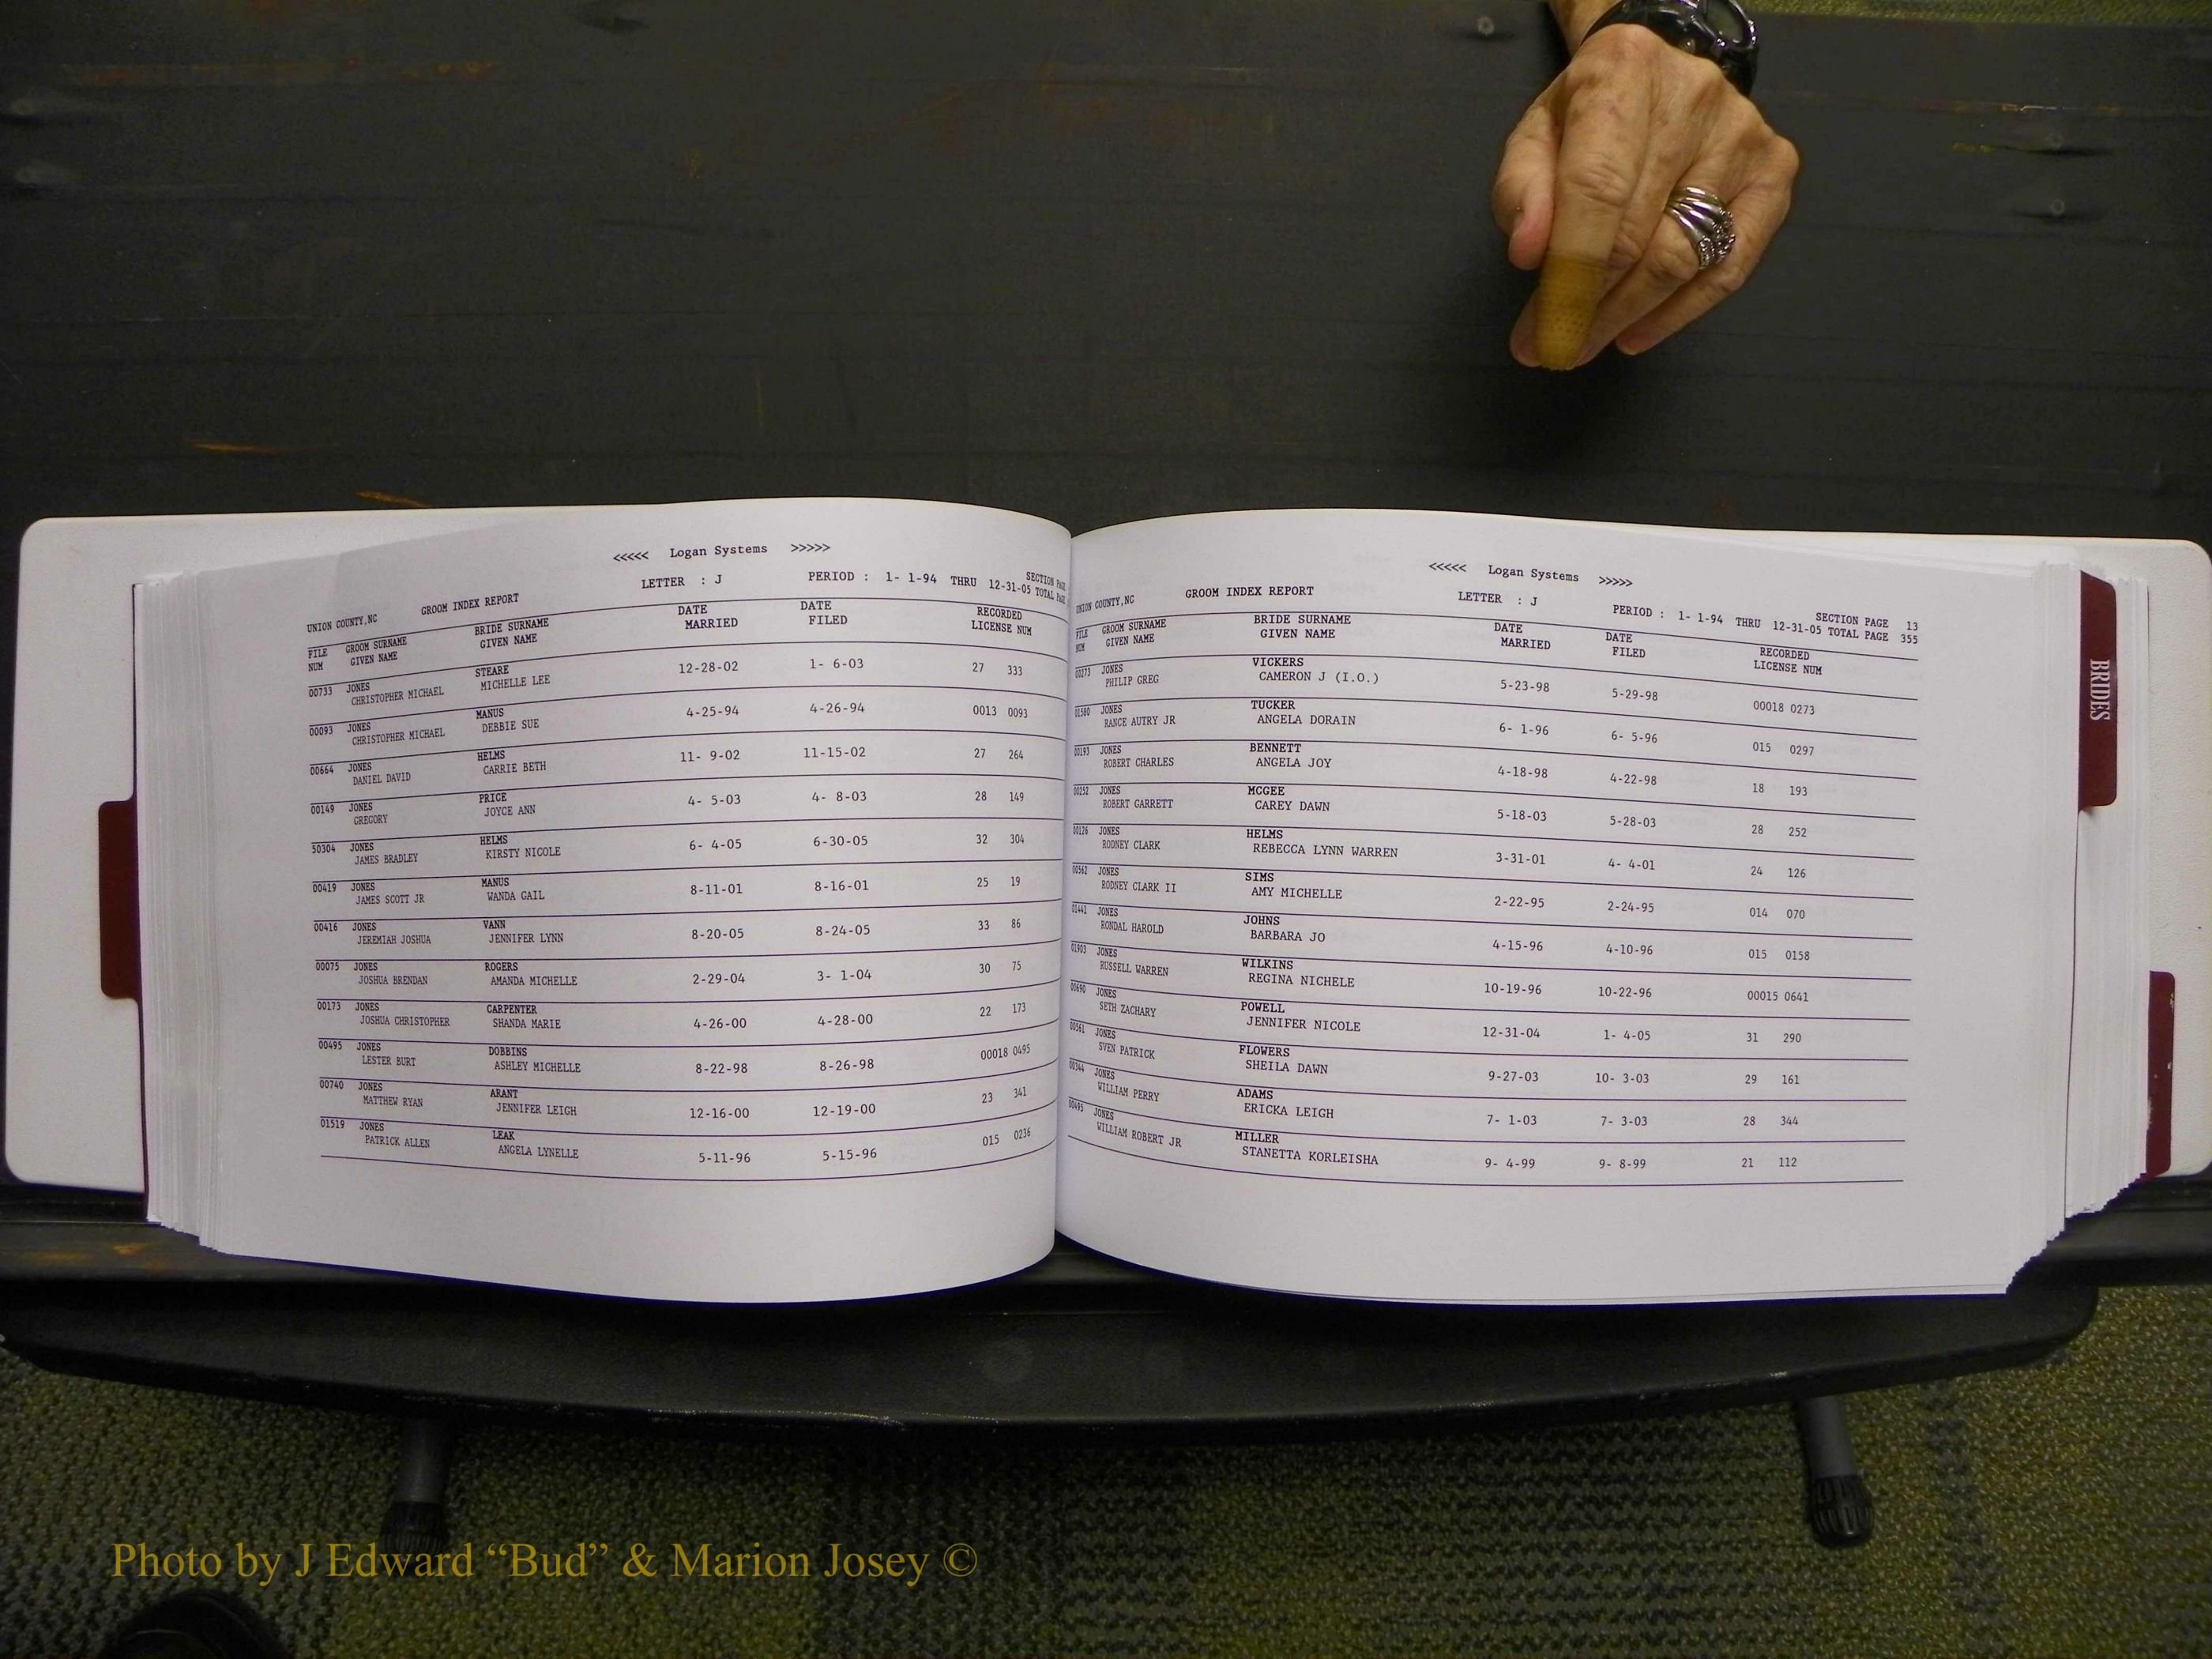 <<<<< Logan Systems >>>>>
UNION COUNTY,NC GROOM INDEX REPORT LETTER : J PERIOD : 1- 1-94 THRU 12-31-05 SECTION PAGE TOTAL PAGE
FILE GROOM SURNAME BRIDE SURNAME DATE DATE RECORDED
NUM GIVEN NAME GIVEN NAME MARRIED FILED LICENSE NUM
00733 JONES STEARE 12-28-02 1- 6-03 27 333
CHRISTOPHER MICHAEL MICHELLE LEE
00093 JONES MANUS 4-25-94 4-26-94 0013 0093
CHRISTOPHER MICHAEL DEBBIE SUE
00664 JONES HELMS 11- 9-02 11-15-02 27 264
DANIEL DAVID CARRIE BETH
00149 JONES PRICE 4- 5-03 4- 8-03 28 149
GREGORY JOYCE ANN
50304 JONES HELMS 6- 4-05 6-30-05 32 304
JAMES BRADLEY KIRSTY NICOLE
00419 JONES MANUS 8-11-01 8-16-01 25 19
JAMES SCOTT JR WANDA GAIL
00416 JONES VANN 8-20-05 8-24-05 33 86
JEREMIAH JOSHUA JENNIFER LYNN
00075 JONES ROGERS 2-29-04 3- 1-04 30 75
JOSHUA BRENDAN AMANDA MICHELLE
00173 JONES CARPENTER 4-26-00 4-28-00 22 173
JOSHUA CHRISTOPHER SHANDA MARIE
00495 JONES DOBBINS 8-22-98 8-26-98 00018 0495
LESTER BURT ASHLEY MICHELLE
00740 JONES ARANT 12-16-00 12-19-00 23 341
MATTHEW RYAN JENNIFER LEIGH
01519 JONES LEAK 5-11-96 5-15-96 015 0236
PATRICK ALLEN ANGELA LYNELLE
<<<<< Logan Systems >>>>>
UNION COUNTY,NC GROOM INDEX REPORT LETTER : J PERIOD : 1- 1-94 THRU 12-31-05 SECTION PAGE 13 TOTAL PAGE 355
FILE GROOM SURNAME BRIDE SURNAME DATE DATE RECORDED
NUM GIVEN NAME GIVEN NAME MARRIED FILED LICENSE NUM
00273 JONES VICKERS 5-23-98 5-29-98 00018 0273
PHILIP GREG CAMERON J (I.O.)
01580 JONES TUCKER 6- 1-96 6- 5-96 015 0297
RANCE AUTRY JR ANGELA DORAIN
00193 JONES BENNETT 4-18-98 4-22-98 18 193
ROBERT CHARLES ANGELA JOY
00252 JONES MCGEE 5-18-03 5-28-03 28 252
ROBERT GARRETT CAREY DAWN
00126 JONES HELMS 3-31-01 4- 4-01 24 126
RODNEY CLARK REBECCA LYNN WARREN
00562 JONES SIMS 2-22-95 2-24-95 014 070
RODNEY CLARK II AMY MICHELLE
01441 JONES JOHNS 4-15-96 4-10-96 015 0158
RONDAL HAROLD BARBARA JO
01903 JONES WILKINS 10-19-96 10-22-96 00015 0641
RUSSELL WARREN REGINA NICHELE
00690 JONES POWELL 12-31-04 1- 4-05 31 290
SETH ZACHARY JENNIFER NICOLE
00561 JONES FLOWERS 9-27-03 10- 3-03 29 161
SVEN PATRICK SHEILA DAWN
00344 JONES ADAMS 7- 1-03 7- 3-03 28 344
WILLIAM PERRY ERICKA LEIGH
00495 JONES MILLER 9- 4-99 9- 8-99 21 112
WILLIAM ROBERT JR STANETTA KORLEISHA
BRIDES
Photo by J Edward “Bud” & Marion Josey ©